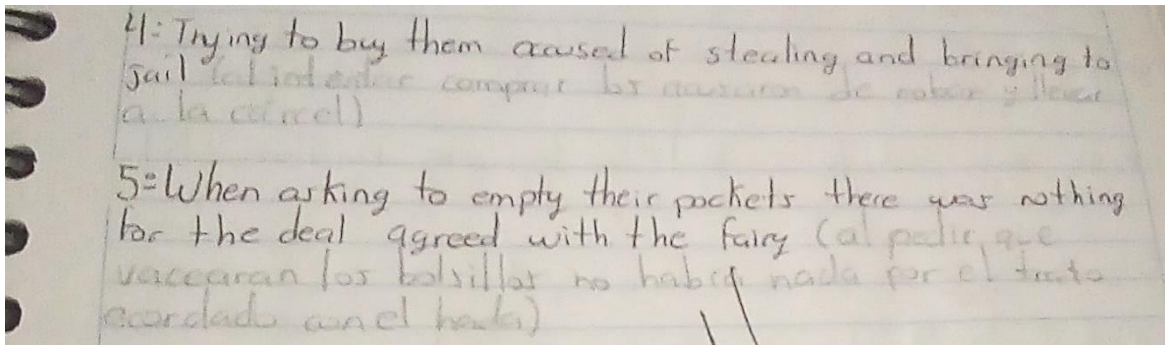 4: Trying to buy them acused of stealing and bringing to
jail (al intentar comprar los acusaron de robar y llevar
a la carcel)
5: When asking to empty their pockets there was nothing
for the deal agreed with the fairy (al pedir que
vacearan los bolsillos no había nada por el trato
acordado con el hada)